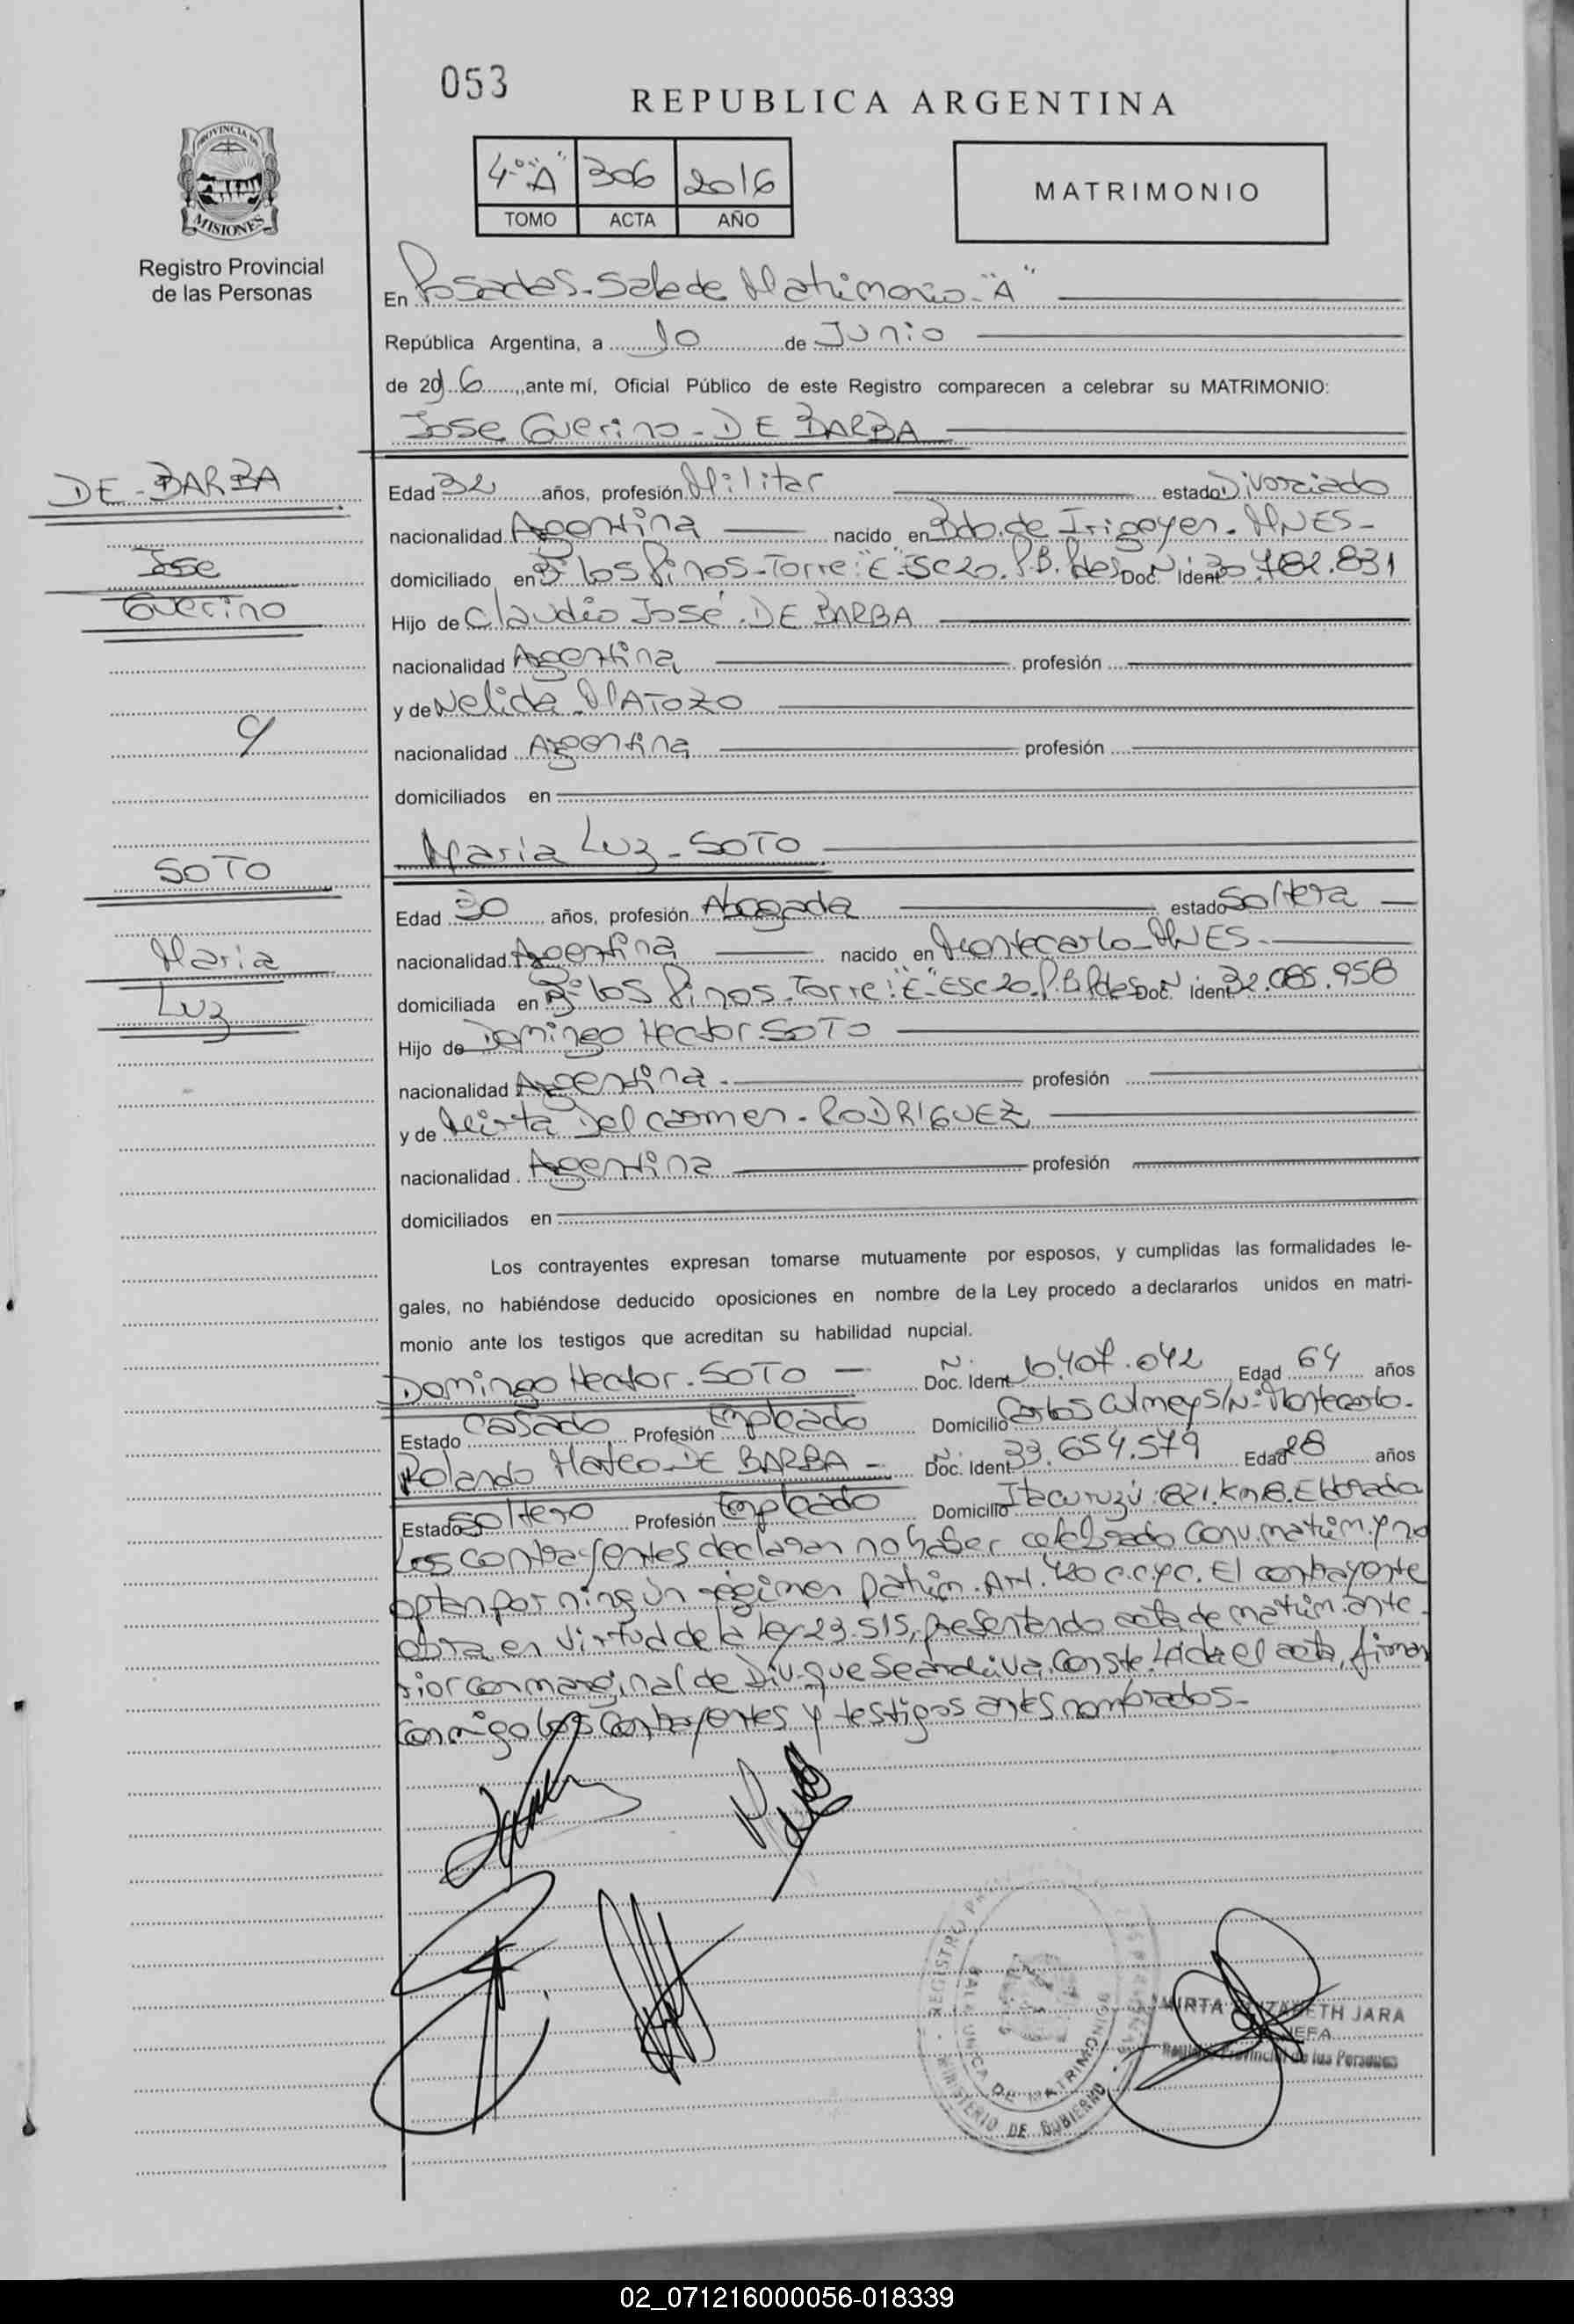 053
REPUBLICA ARGENTINA
4º "A" 306 2016
TOMO ACTA AÑO
MATRIMONIO
PROVINCIA DE
MISIONES
Registro Provincial
de las Personas
En Posadas-Sala de Matrimonio-"A"
República Argentina, a 10 de Junio
de 2016, ante mí, Oficial Público de este Registro comparecen a celebrar su MATRIMONIO:
Jose Guerino - DE BARBA
DE-BARBA
Jose
Guerino
Edad 32 años, profesión Militar estado Divorciado
nacionalidad Argentina nacido en Bdo. de Irigoyen-MNES-
domiciliado en Bº los Pinos-Torre:"E"-ESC20.P.B.Pdas Doc. N: Ident 30.782.831
Hijo de Claudio José. DE BARBA
nacionalidad Argentina profesión
y de Nelida MATOZO
nacionalidad Argentina profesión
domiciliados en
c/
Maria Luz-SOTO
SOTO
Maria
Luz
Edad 30 años, profesión Abogada estado Soltera
nacionalidad Argentina nacido en Montecarlo-MNES-
domiciliada en Bº los Pinos-Torre:"E"-ESC20.P.B.Pdas Doc. N: Ident 32.085.958
Hijo de Domingo Hector.SOTO
nacionalidad Argentina profesión
y de Mirta Del Carmen-RODRIGUEZ
nacionalidad Argentina profesión
domiciliados en
Los contrayentes expresan tomarse mutuamente por esposos, y cumplidas las formalidades le-
gales, no habiéndose deducido oposiciones en nombre de la Ley procedo a declararlos unidos en matri-
monio ante los testigos que acreditan su habilidad nupcial.
Domingo Hector.SOTO - Doc. Ident N: Edad 64 años
Estado Casado Profesión Empleado Domicilio Carlos Culmey S/Nº-Montecarlo-
Rolando Mateo DE BARBA - Doc. Ident N: 33.654.579 Edad 28 años
Estado Soltero Profesión Empleado Domicilio Itacuruzú 821.Km8.Eldorado
Los contrayentes declaran no haber celebrado Conv.matrim.y no
optan por ningún régimen Patrim. Art. 420 C.C.yC. El contrayente
obra en virtud de la Ley 23.515, presentando acta de matrim ante-
rior con marginal de Div-que se archiva. Conste. Leída el acta, firman
conmigo los contrayentes y testigos antes nombrados-
REGISTRO
SALA UNICA DE MATRIMONIOS
MINISTERIO DE GOBIERNO
MIRTA ELIZABETH JARA
JEFA
Registro Provincial de las Personas
02_071216000056-018339